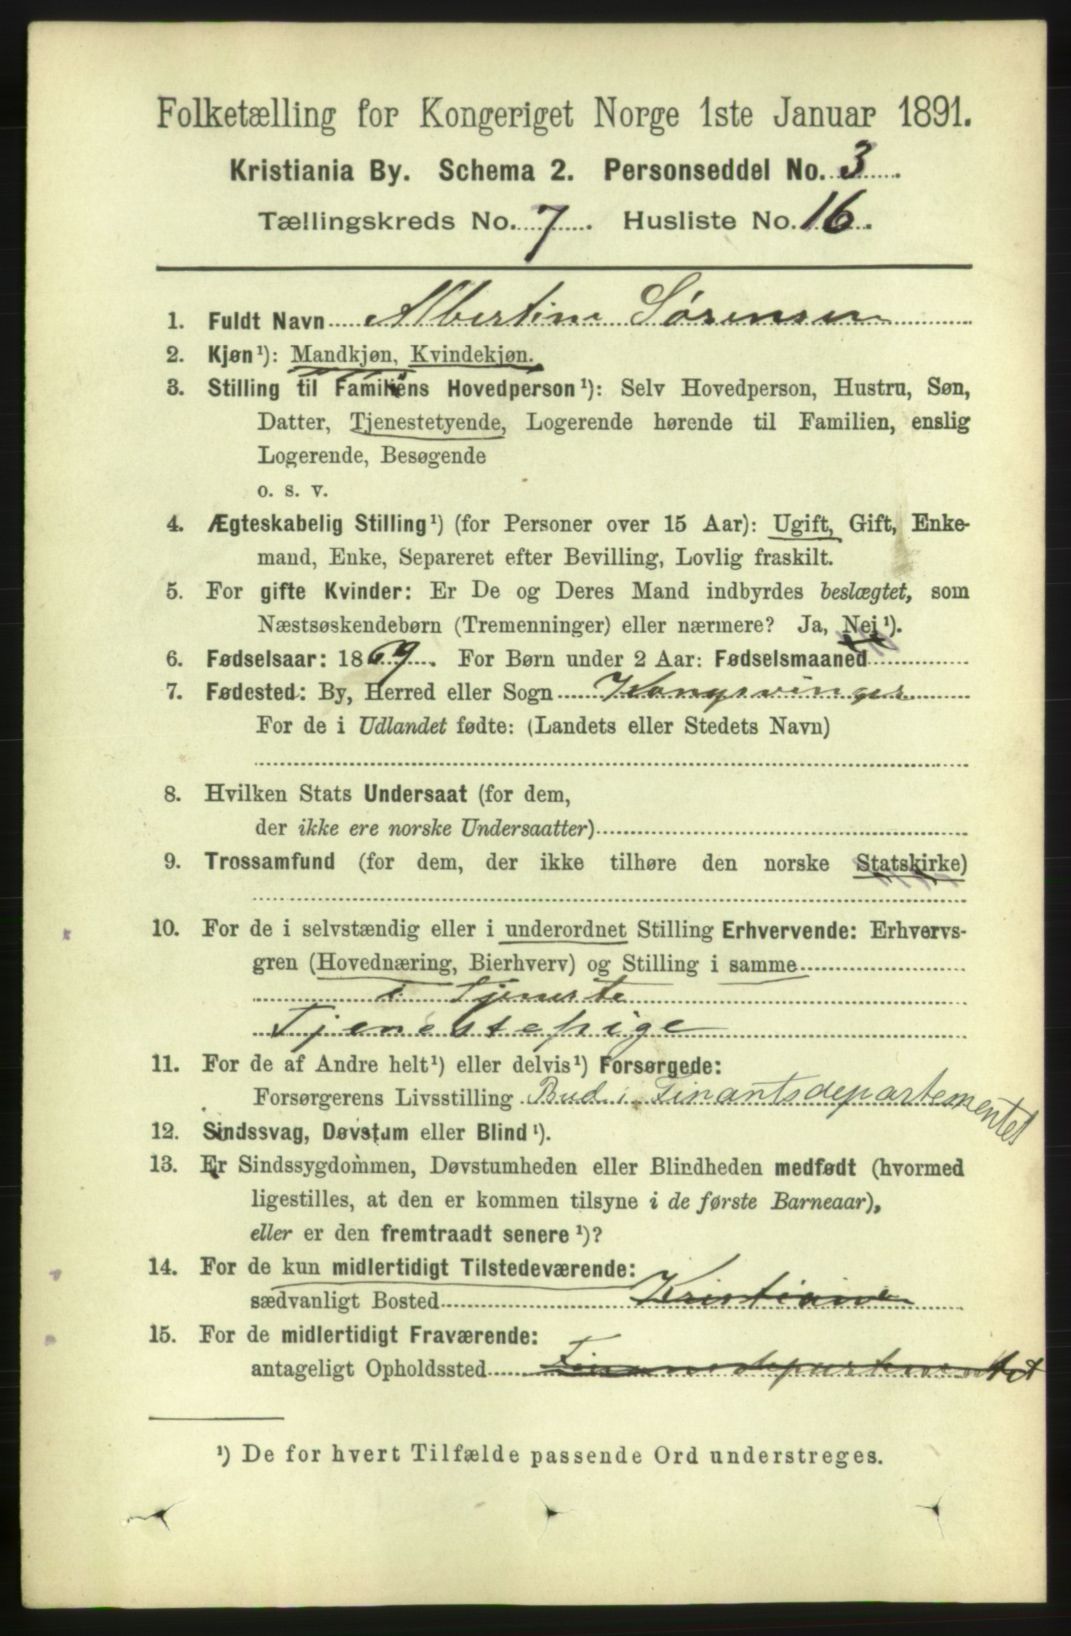 Folketælling for Kongeriget Norge 1ste Januar 1891.
Kristiania By. Schema 2. Personseddel No. 3.
Tællingskreds No. 7. Husliste No. 16.
1. Fuldt Navn Albertine Sørensen
2. Kjøn¹): Mandkjøn, Kvindekjøn.
3. Stilling til Familiens Hovedperson¹): Selv Hovedperson, Hustru, Søn,
Datter, Tjenestetyende, Logerende hørende til Familien, enslig
Logerende, Besøgende
o. s. v.
4. Ægteskabelig Stilling¹) (for Personer over 15 Aar): Ugift, Gift, Enke-
mand, Enke, Separeret efter Bevilling, Lovlig fraskilt.
5. For gifte Kvinder: Er De og Deres Mand indbyrdes beslægtet, som
Næstsøskendebørn (Tremenninger) eller nærmere? Ja, Nei¹).
6. Fødselsaar: 1869. For Børn under 2 Aar: Fødselsmaaned
7. Fødested: By, Herred eller Sogn Kongsvinger
For de i Udlandet fødte: (Landets eller Stedets Navn)
8. Hvilken Stats Undersaat (for dem,
der ikke ere norske Undersaatter)
9. Trossamfund (for dem, der ikke tilhøre den norske Statskirke)
10. For de i selvstændig eller i underordnet Stilling Erhvervende: Erhvervs-
gren (Hovednæring, Bierhverv) og Stilling i samme
i Tjeneste
Tjenestepige
11. For de af Andre helt¹) eller delvis¹) Forsørgede:
Forsørgerens Livsstilling Bud i Finantsdepartementet
12. Sindssvag, Døvstum eller Blind¹).
13. Er Sindssygdommen, Døvstumheden eller Blindheden medfødt (hvormed
ligestilles, at den er kommen tilsyne i de første Barneaar),
eller er den fremtraadt senere¹)?
14. For de kun midlertidigt Tilstedeværende:
sædvanligt Bosted Kristiania
15. For de midlertidigt Fraværende:
antageligt Opholdssted Finansdepartementet
¹) De for hvert Tilfælde passende Ord understreges.